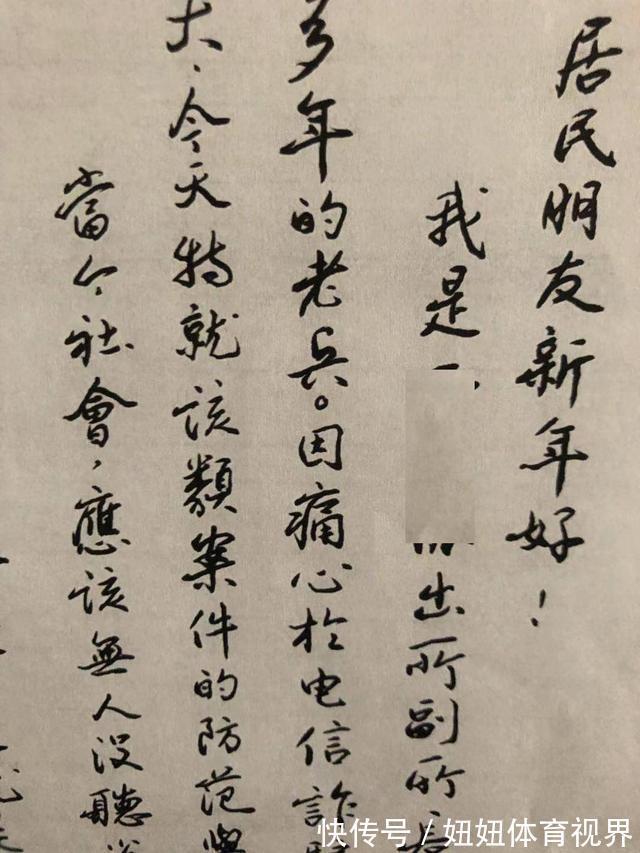 居民朋友新年好！
我是
出所副所長
多年的老兵。因痛心於电信詐
大、今天特就该類案件的防范與
當今社會，應该無人没聽
快传号／妞妞体育视界